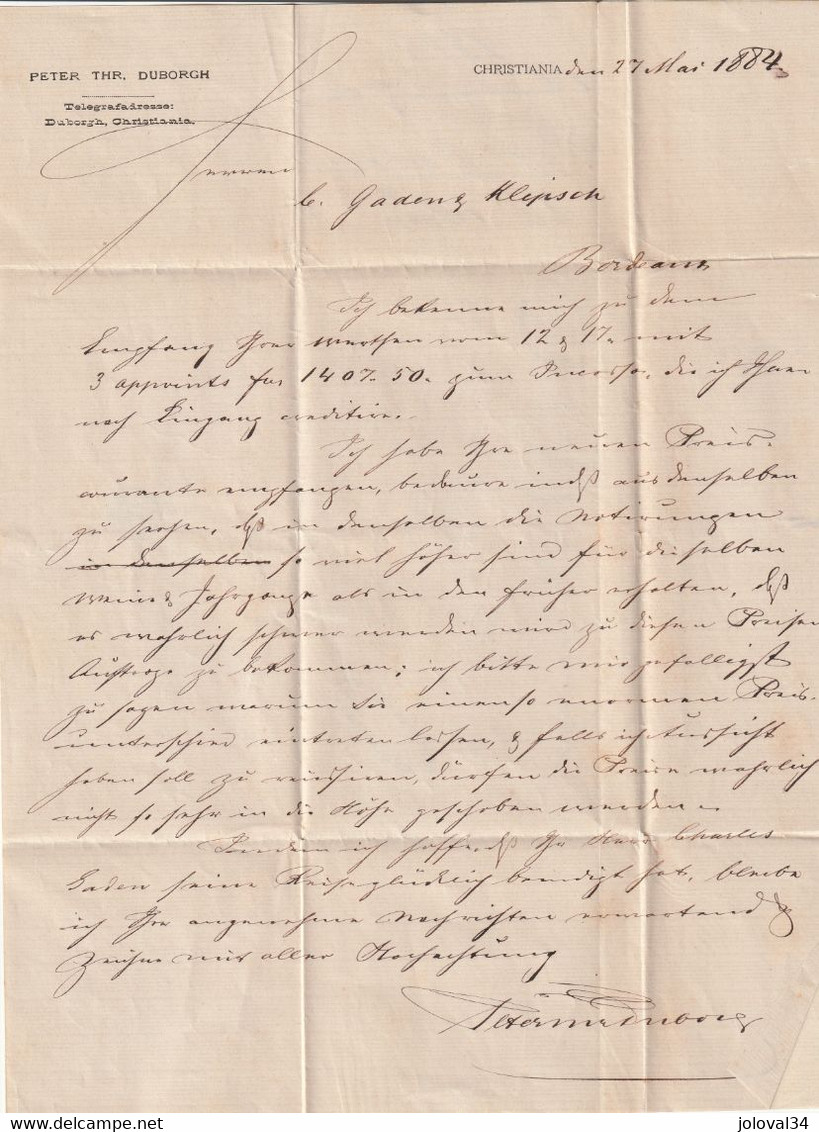 PETER THR. DUBORGH
CHRISTIANIA den 27 Mai 1884
Telegrafadresse:
Duborgh, Christiania.
Herren
C. Gaden & Klipsch
Bordeaux
Ich bekenne mich zu dem
Empfang Ihrer werthen vom 12 & 17. mit
3 appoints fcs 1407.50. zum Incasso, die ich Ihnen
nach Eingang creditire.
Ich habe Ihre neuen Preis-
courante empfangen, bedaure indeß aus denselben
zu sehen, daß in denselben die Notirungen
in denselben so viel höher sind für dieselben
Weine & Jahrgange als in den früher erhalten, daß
es wahrlich schwer werden wird zu diesen Preisen
Auftrage zu bekommen; ich bitte mir gefalligst
zu sagen warum Sie einen so enormen Preis-
unterschied eintreten lassen, & falls ich Aussicht
haben soll zu reussiren, dürfen die Preise wahrlich
nicht so sehr in die Höhe geschoben werden.
Indem ich hoffe, daß Ihr Herr Charles
Gaden seine Reise glücklich beendigt hat, bleibe
ich Ihre angenehme Nachrichten erwartend &
Zeichne mit aller Hochachtung
Peter Thr Duborgh
delcampe.net
joloval34